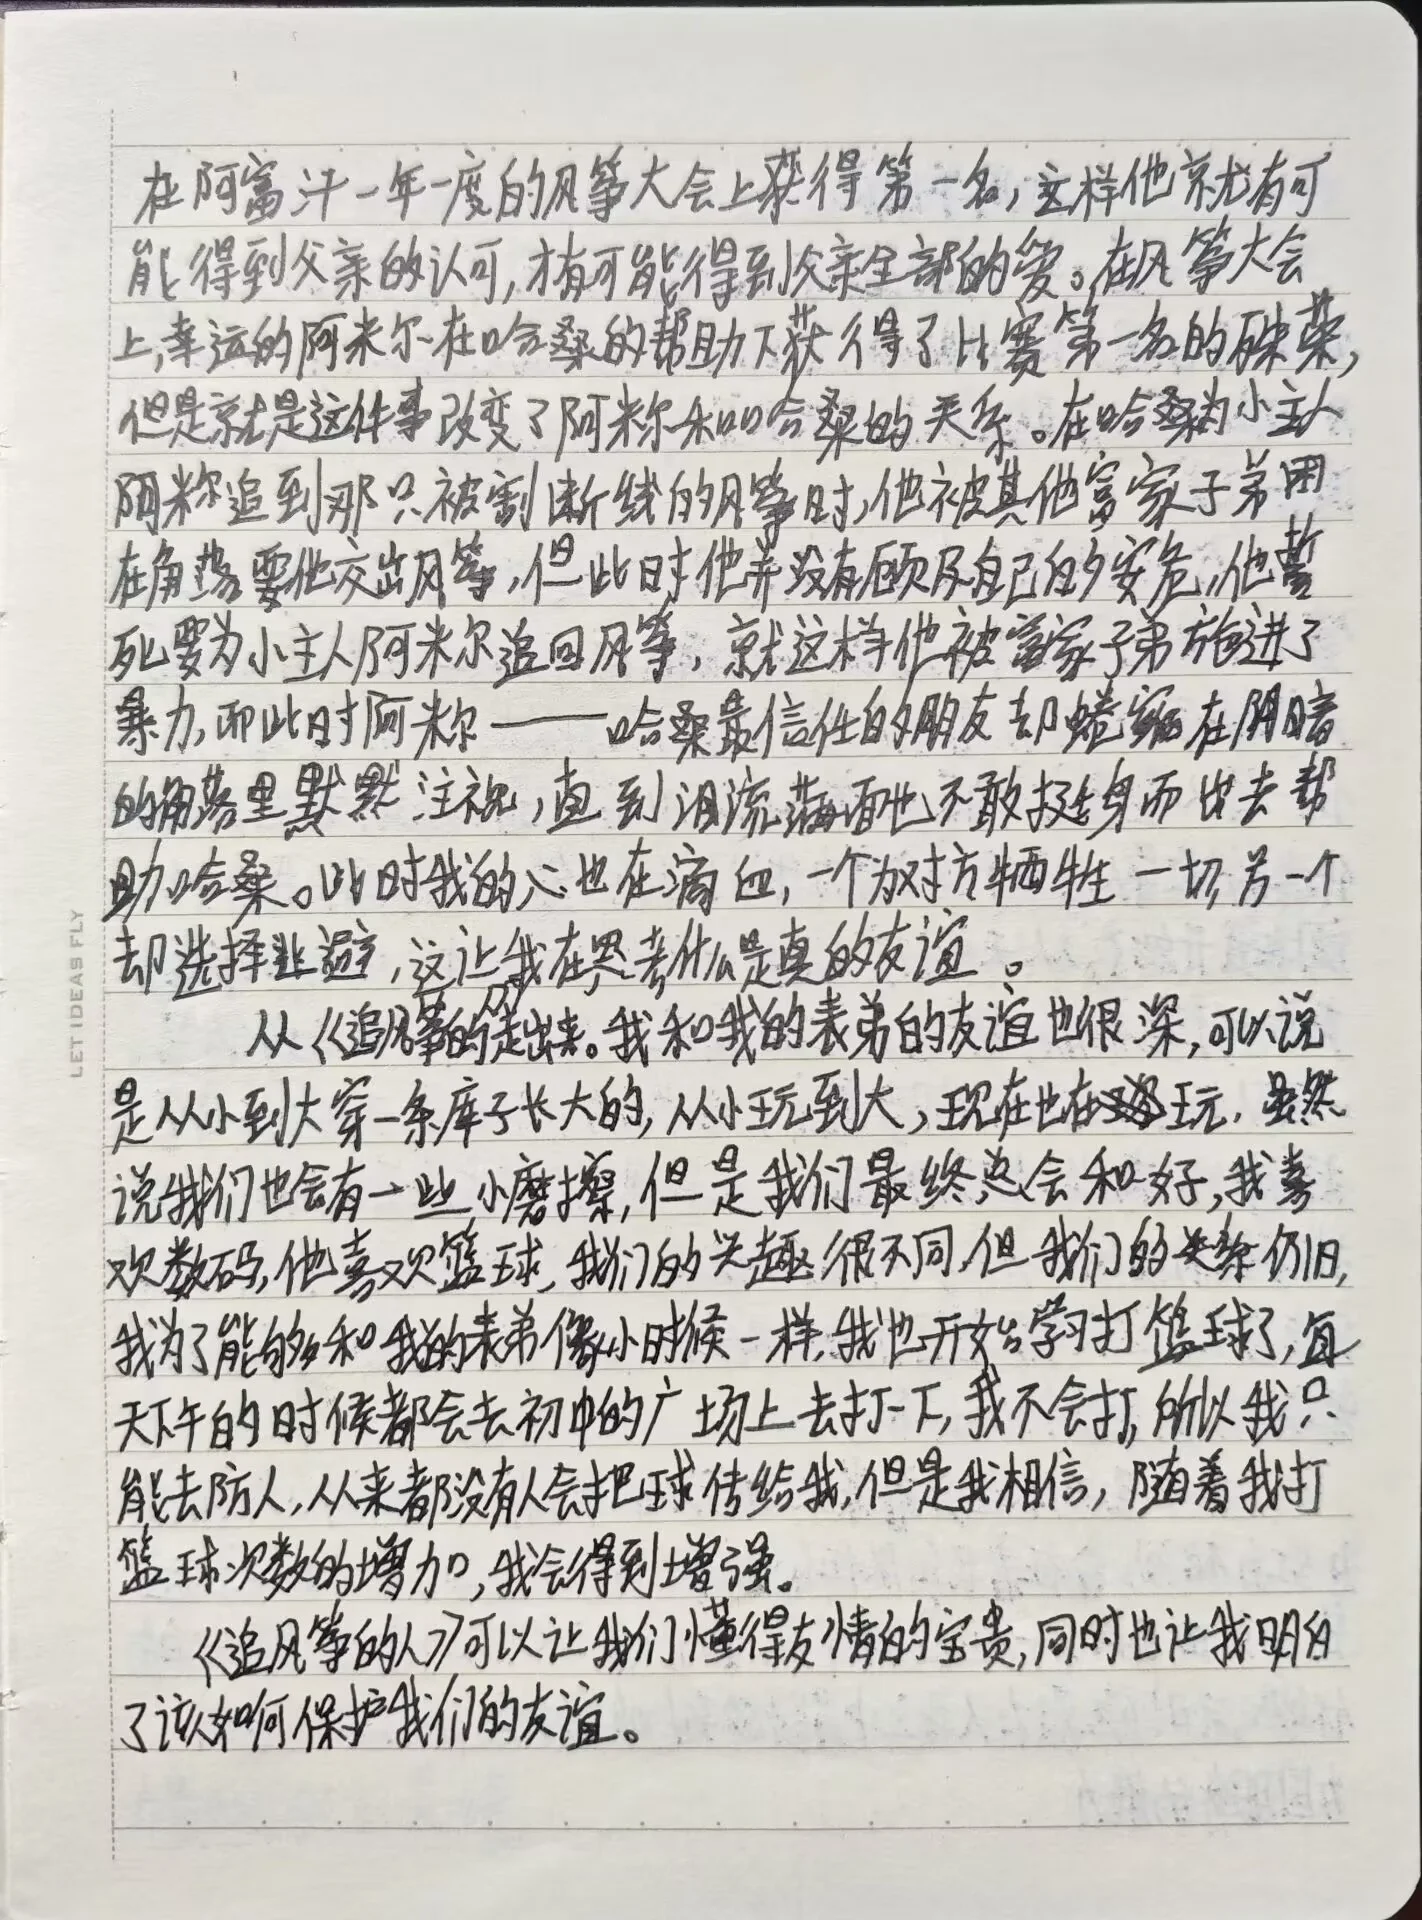 在阿富汗一年一度的风筝大会上获得第一名,这样他就有可
能得到父亲的认可,才有可能得到父亲全部的爱。在风筝大会
上,幸运的阿米尔在哈桑的帮助下获得了比赛第一名的殊荣,
但是就是这件事改变了阿米尔和哈桑的关系。在哈桑为小主人
阿米尔追到那只被割断线的风筝时,他被其他富家子弟困
在角落要他交出风筝,但此时他并没有顾及自己的安危,他誓
死要为小主人阿米尔追回风筝,就这样他被富家子弟施进了
暴力,而此时阿米尔——哈桑最信任的朋友却蜷缩在阴暗
的角落里默默注视,直到泪流满面也不敢挺身而出去帮
助哈桑。此时我的心也在滴血,一个为对方牺牲一切,另一个
却选择逃避,这让我在思考什么是真的友谊。
从《追风筝的人》走出来。我和我的表弟的友谊也很深,可以说
是从小到大穿一条库子长大的,从小玩到大,现在也在玩,虽然
说我们也会有一些小磨擦,但是我们最终总会和好,我喜
欢数码,他喜欢篮球,我们的兴趣很不同,但我们的关系仍旧,
我为了能够和我的表弟像小时候一样,我也开始学习打篮球了,每
天下午的时候都会去初中的广场上去打一下,我不会打,所以我只
能去防人,从来都没有人会把球传给我,但是我相信,随着我打
篮球次数的增加,我会得到增强。
《追风筝的人》可以让我们懂得友情的宝贵,同时也让我明白
了该如何保护我们的友谊。
LET IDEAS FLY